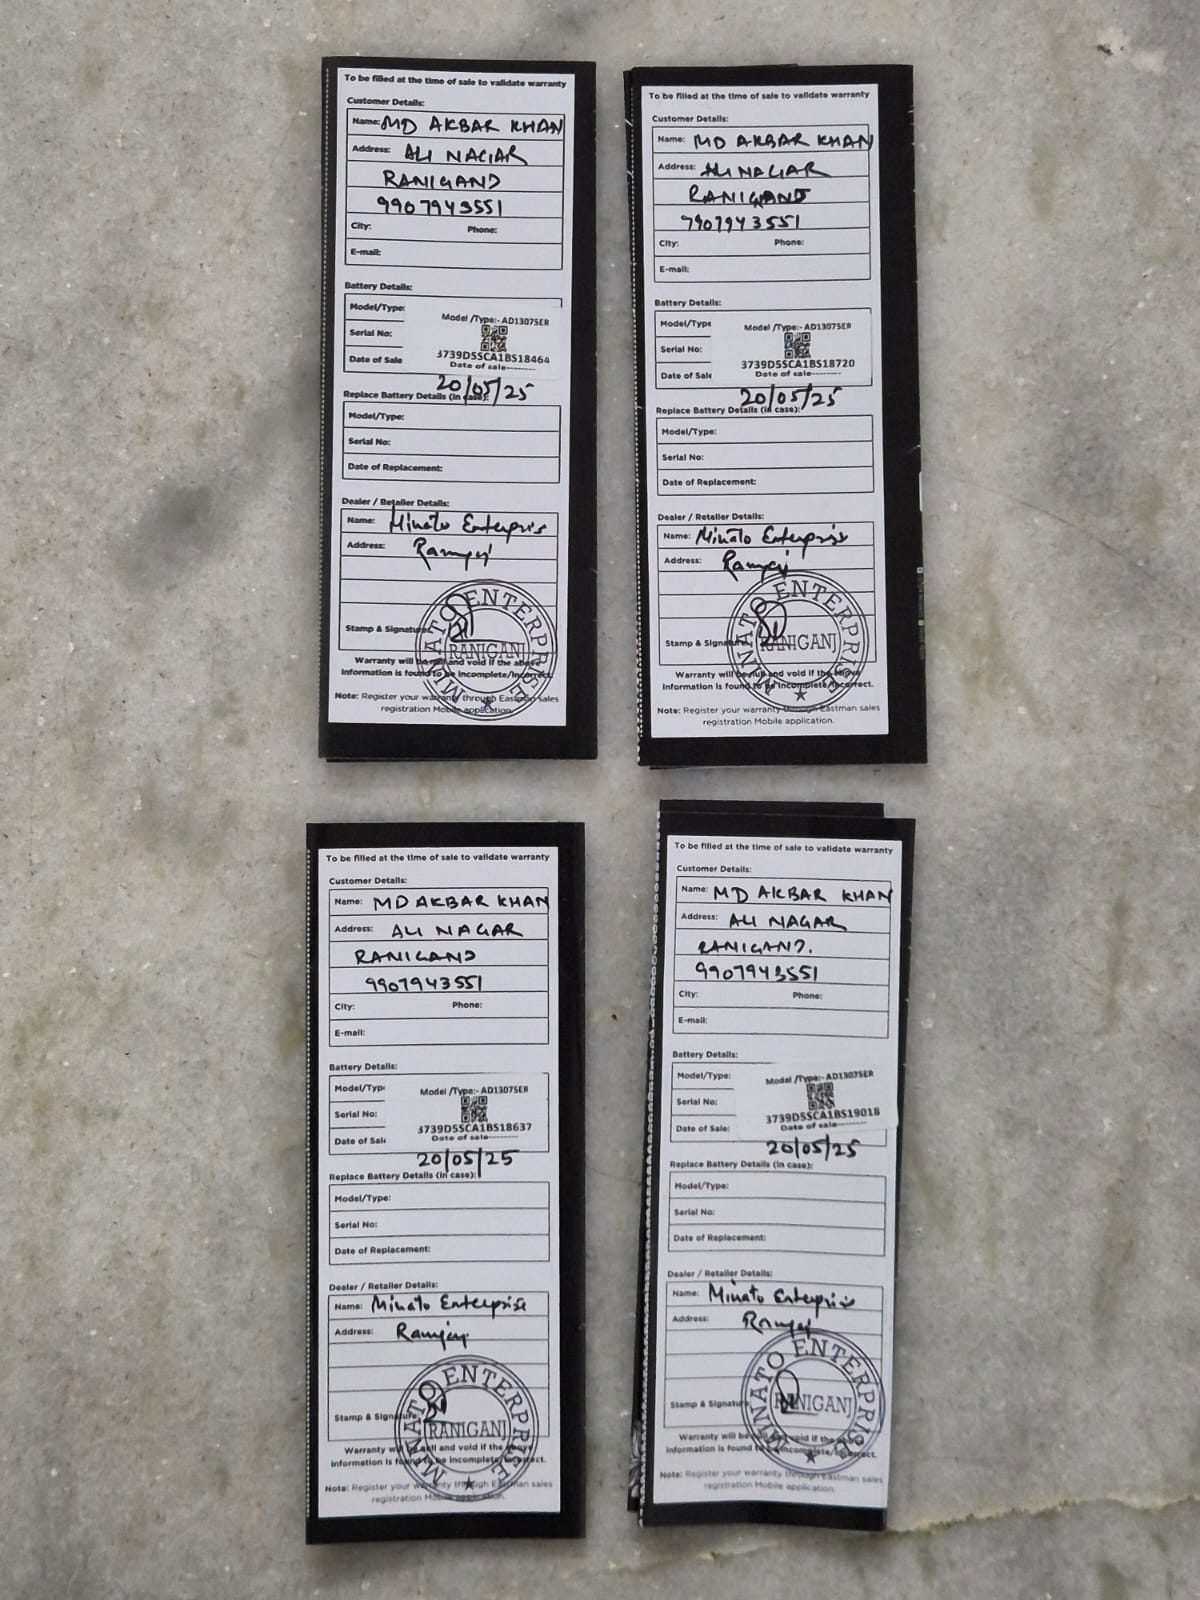 To be filled at the time of sale to validate warranty
Customer Details:
Name: MD AKBAR KHAN
Address: ALI NAGAR
RANIGANJ
9907943551
City: Phone:
E-mail:
Battery Details:
Model/Type:
Serial No:
Date of Sale
Model /Type:- AD13075ER
3739D5SCA1BS18464
Date of sale---------
20/05/25
Replace Battery Details (in case):
Model/Type:
Serial No:
Date of Replacement:
Dealer / Retailer Details:
Name: Minato Enterpris
Address:
Stamp & Signature
MINATO ENTERPRISE
RANIGANJ
Warranty will be null and void if the above
information is found to be incomplete/Incorrect.
Note: Register your warranty through Eastman sales
registration Mobile application.
To be filled at the time of sale to validate warranty
Customer Details:
Name: MD AKBAR KHAN
Address: ALI NAGAR
RANIGANJ
9907943551
City: Phone:
E-mail:
Battery Details:
Model/Type
Serial No:
Date of Sale
Model /Type:- AD13075ER
3739D5SCA1BS18720
Date of sale---------
20/05/25
Replace Battery Details (in case):
Model/Type:
Serial No:
Date of Replacement:
Dealer / Retailer Details:
Name: Minato Enterprise
Address:
Stamp & Signature
MINATO ENTERPRISE
RANIGANJ
Warranty will be null and void if the above
information is found to be incomplete/Incorrect.
Note: Register your warranty through Eastman sales
registration Mobile application.
To be filled at the time of sale to validate warranty
Customer Details:
Name: MD AKBAR KHAN
Address: ALI NAGAR
RANIGANJ
9907943551
City: Phone:
E-mail:
Battery Details:
Model/Type
Serial No:
Date of Sale
Model /Type:- AD13075ER
3739D5SCA1BS18637
Date of sale---------
20/05/25
Replace Battery Details (in case):
Model/Type:
Serial No:
Date of Replacement:
Dealer / Retailer Details:
Name: Minato Enterprise
Address:
Stamp & Signature:
MINATO ENTERPRISE
RANIGANJ
Warranty will be null and void if the above
information is found to be incomplete/Incorrect.
Note: Register your warranty through Eastman sales
registration Mobile application.
To be filled at the time of sale to validate warranty
Customer Details:
Name: MD AKBAR KHAN
Address: ALI NAGAR
RANIGANJ.
9907943551
City: Phone:
E-mail:
Battery Details:
Model/Type:
Serial No:
Date of Sale:
Model /Type:- AD13075ER
3739D5SCA1BS19018
Date of sale---------
20/05/25
Replace Battery Details (in case):
Model/Type:
Serial No:
Date of Replacement:
Dealer / Retailer Details:
Name: Minato Enterpris
Address:
Stamp & Signature
MINATO ENTERPRISE
RANIGANJ
Warranty will be null and void if the above
information is found to be incomplete/Incorrect.
Note: Register your warranty through Eastman sales
registration Mobile application.